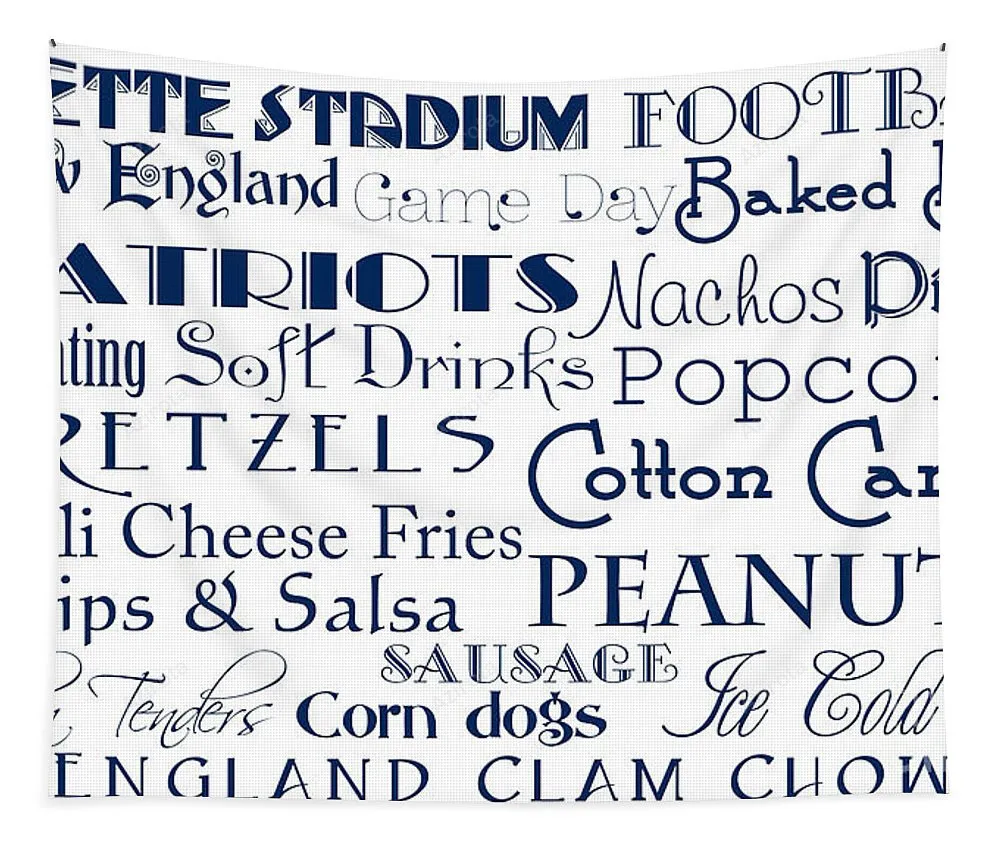 ETTE STADIUM FOOTB
w England Game Day Baked
ATRIOTS Nachos
ating Soft Drinks Popco
RETZELS Cotton Can
li Cheese Fries
ips & Salsa PEANUT
SAUSAGE
Tenders Corn dogs Ice Cold
ENGLAND CLAM CHOW